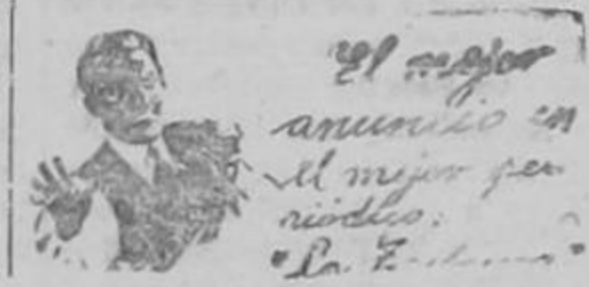 El mejor
anuncio en
el mejor per
riódico:
"La